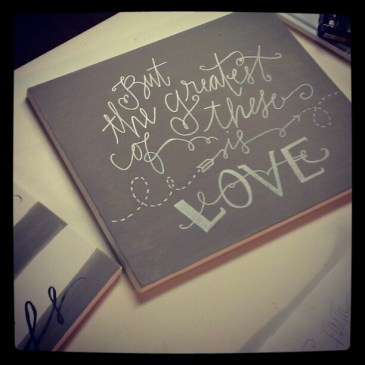 But
the greatest
of these
is
LOVE